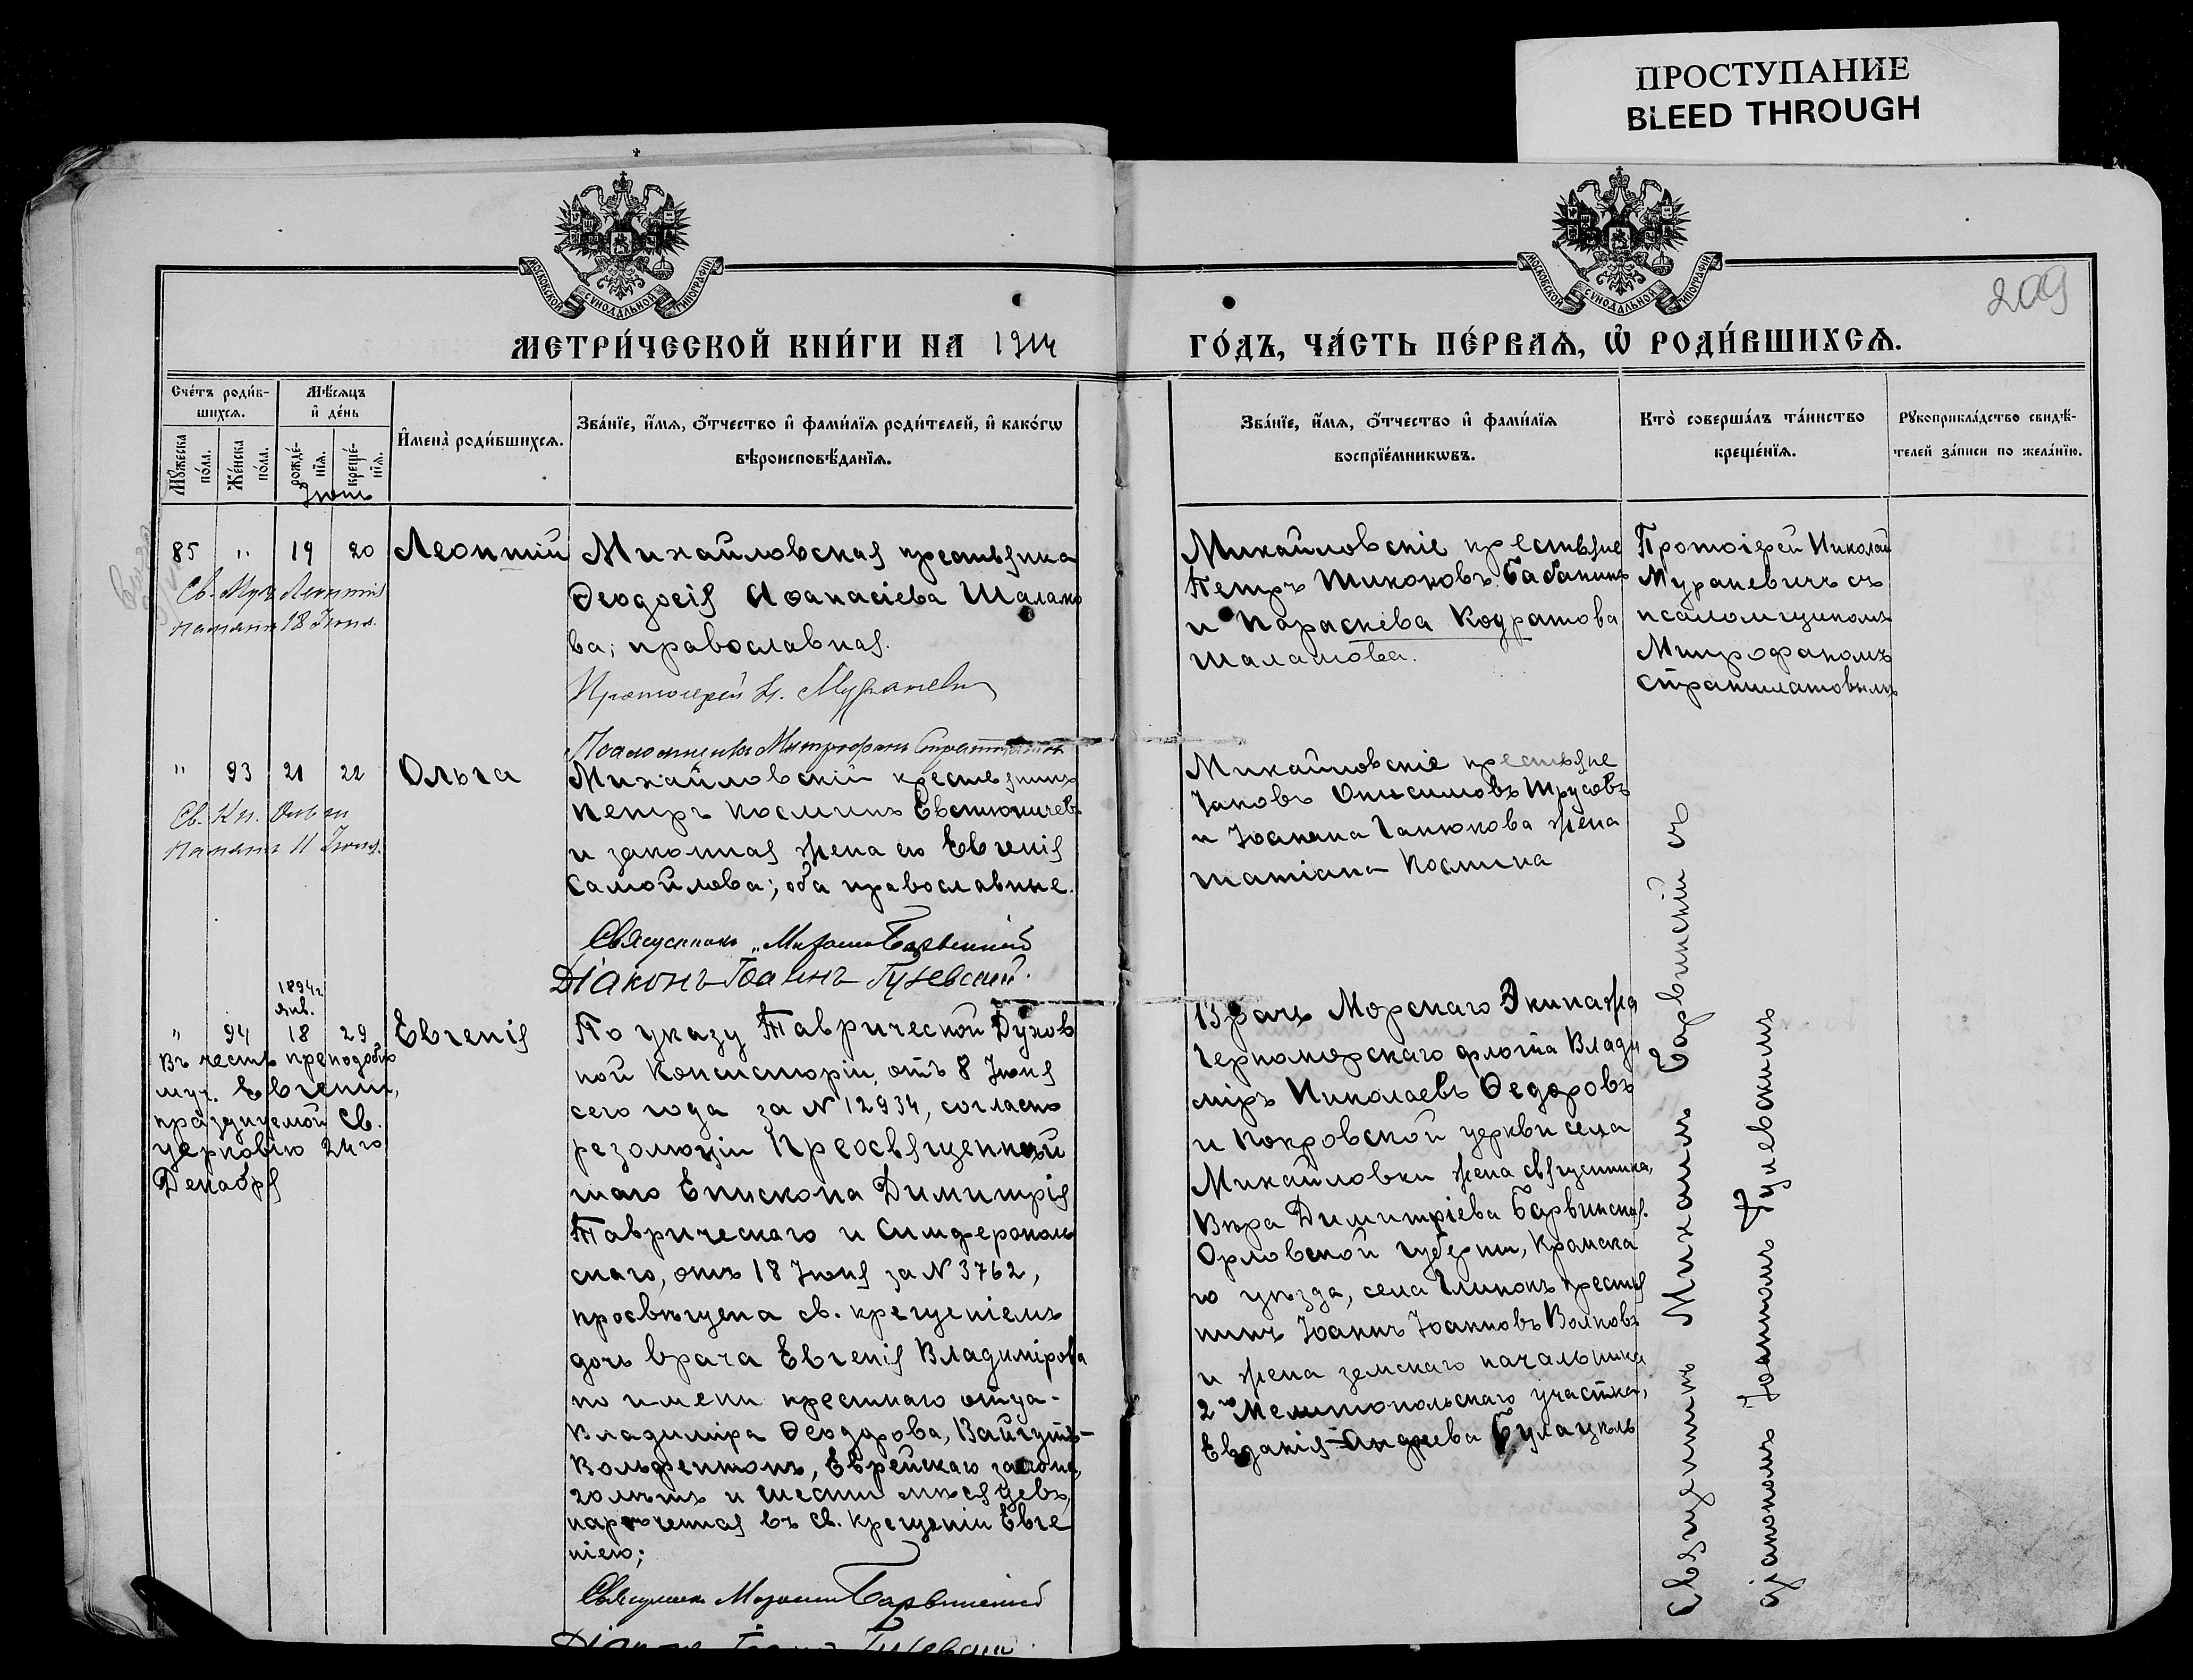 ПРОСТУПАНИЕ
BLEED THROUGH
МОСКОВСКОЙ СѴНОДАЛЬНОЙ ТИПОГРАФІИ
МОСКОВСКОЙ СѴНОДАЛЬНОЙ ТИПОГРАФІИ
209
МЕТРИ́ЧЕСКОЙ КНИ́ГИ НА 1914
ГО́ДЪ, ЧА́СТЬ ПЕ́РВАѦ, Ѡ РОДИ́ВШИХСѦ.
Счётъ роди́в-
шихся.
Мѣсяцъ
и де́нь
Мꙋжеска
по́ла.
Же́нска
по́ла.
рожде́-
нїя.
креще́-
нїя.
Имена̀ роди́вшихся.
Зва́нїе, и́мя, о́тчество и фами́лїя роди́телей, и како́гѡ
вѣроисповѣ́данїя.
Зва́нїе, и́мя, о́тчество и фами́лїя
воспрїе́мникѡвъ.
Кто̀ соверша́лъ та́инство
креще́нїя.
Рꙋкоприкла́дство свидѣ́-
телей за́писи по жела́нїю.
Іюнь
85 " 19 20 Леонтій
Св. Муч. Леонтія
память 18 Іюня.
Михайловская крестьянка
Ѳеодосія Аѳанасіева Шаламо
ва; православная.
Протоіерей Н. Мураневич
Псаломщикъ Митрофанъ Стратилатов
Михайловскіе крестьяне
Петръ Тихоновъ Бабанинъ
и Параскева Кодратова
Шаламова.
Протоіерей Николай
Мураневичъ съ
псаломщикомъ
Митрофаномъ
Стратилатовымъ
" 93 21 22 Ольга
Св. Кн. Ольги
память 11 Іюля.
Михайловскій крестьянинъ
Петръ Косминъ Евстюничевъ
и законная жена его Евгенія
Самойлова; оба православные.
Священникъ Михаилъ Барвинскій
Діаконъ Іоаннъ Гуневскій.
Михайловскіе крестьяне
Іаковъ Онисимовъ Трусовъ
и Іоанна Ганюкова жена
Татіана Космина
1894 г.
Янв.
" 94 18 29 Евгенія
Въ честь преподобно
муч. Евгеніи,
празднуемой Св.
церковію 24 го
Декабря
По указу Таврической Духов
ной Консисторіи, отъ 8 Іюня
сего года за № 12934, согласно
резолюціи Преосвященнѣй
шаго Епископа Димитрія
Таврическаго и Симферополь
скаго, отъ 18 Іюня за № 3762,
просвѣщена св. крещеніемъ
дочь врача Евгенія Владимірова
по имени крестнаго отца-
Владиміра Ѳеодорова, Вайгутъ-
Вольфентонъ, Еврейскаго закона,
20 лѣтъ и шести мѣсяцевъ,
нареченная въ св. Крещеніи Евге
ніею;
Священникъ Михаилъ Барвинскій
Діаконъ Іоаннъ Гуневскій
Врачъ Морскаго Экипажа
Черноморскаго флота Влади
міръ Николаевъ Ѳедоровъ
и Покровской церкви села
Михайловки жена священника,
Вѣра Димитріева Барвинская.
Орловской губерніи, Кромска
го уѣзда, села Глинокъ кресть
нинъ Іоаннъ Іоанновъ Волковъ
и жена земскаго начальника
2 го Мелитопольскаго участка,
Евдокія Андреева Булацель
Священникъ Михаилъ Барвинскій съ
діакономъ Іоанномъ Гуневскимъ